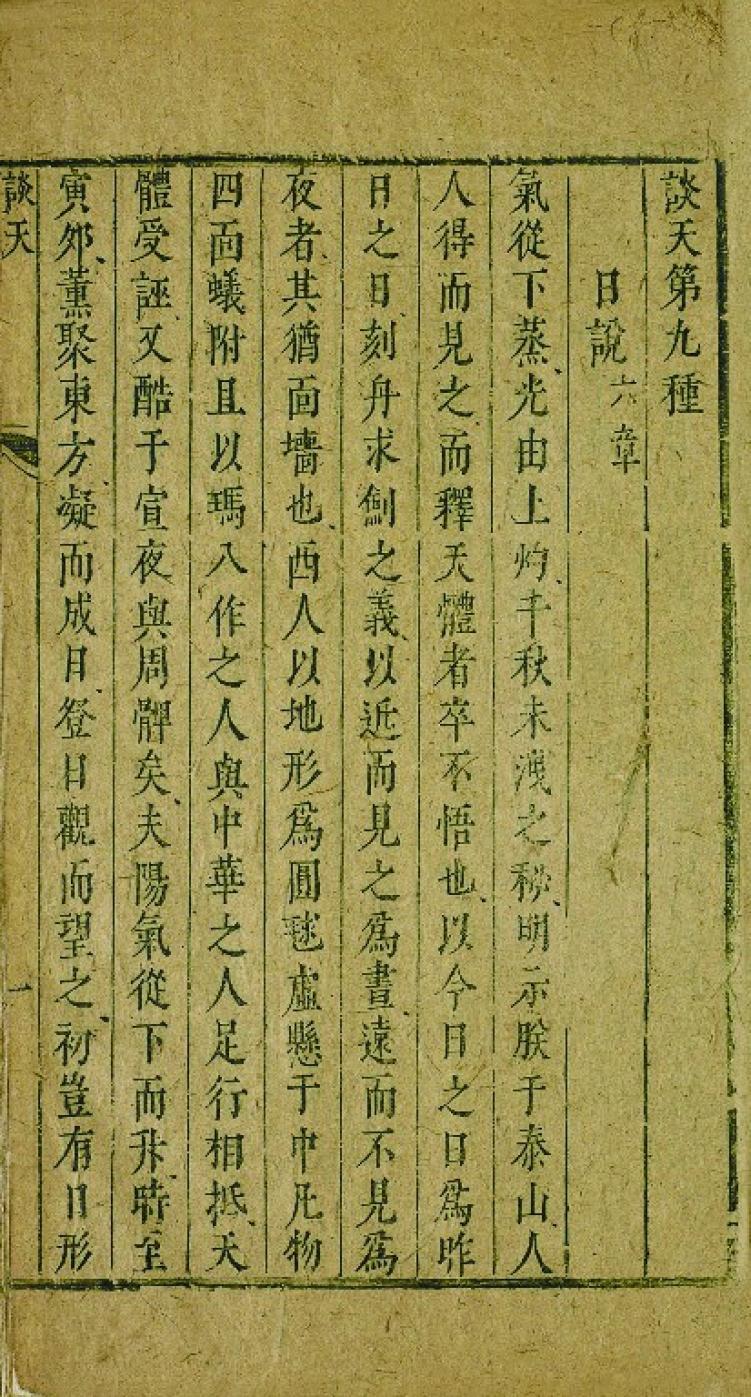 談天第九種
日說六章
氣從下蒸光由上灼千秋未洩之秘明示朕于泰山人
人得而見之而釋天體者卒不悟也以今日之日爲昨
日之日刻舟求劍之義以近而見之爲晝遠而不見爲
夜者其猶面墻也西人以地形爲圓毬虛懸于中凡物
四面蟻附且以瑪八作之人與中華之人足行相抵天
體受誣又酷于宣夜與周髀矣夫陽氣從下而升時至
寅夘薰聚東方凝而成日登日觀而望之初豈有日形
談天
一